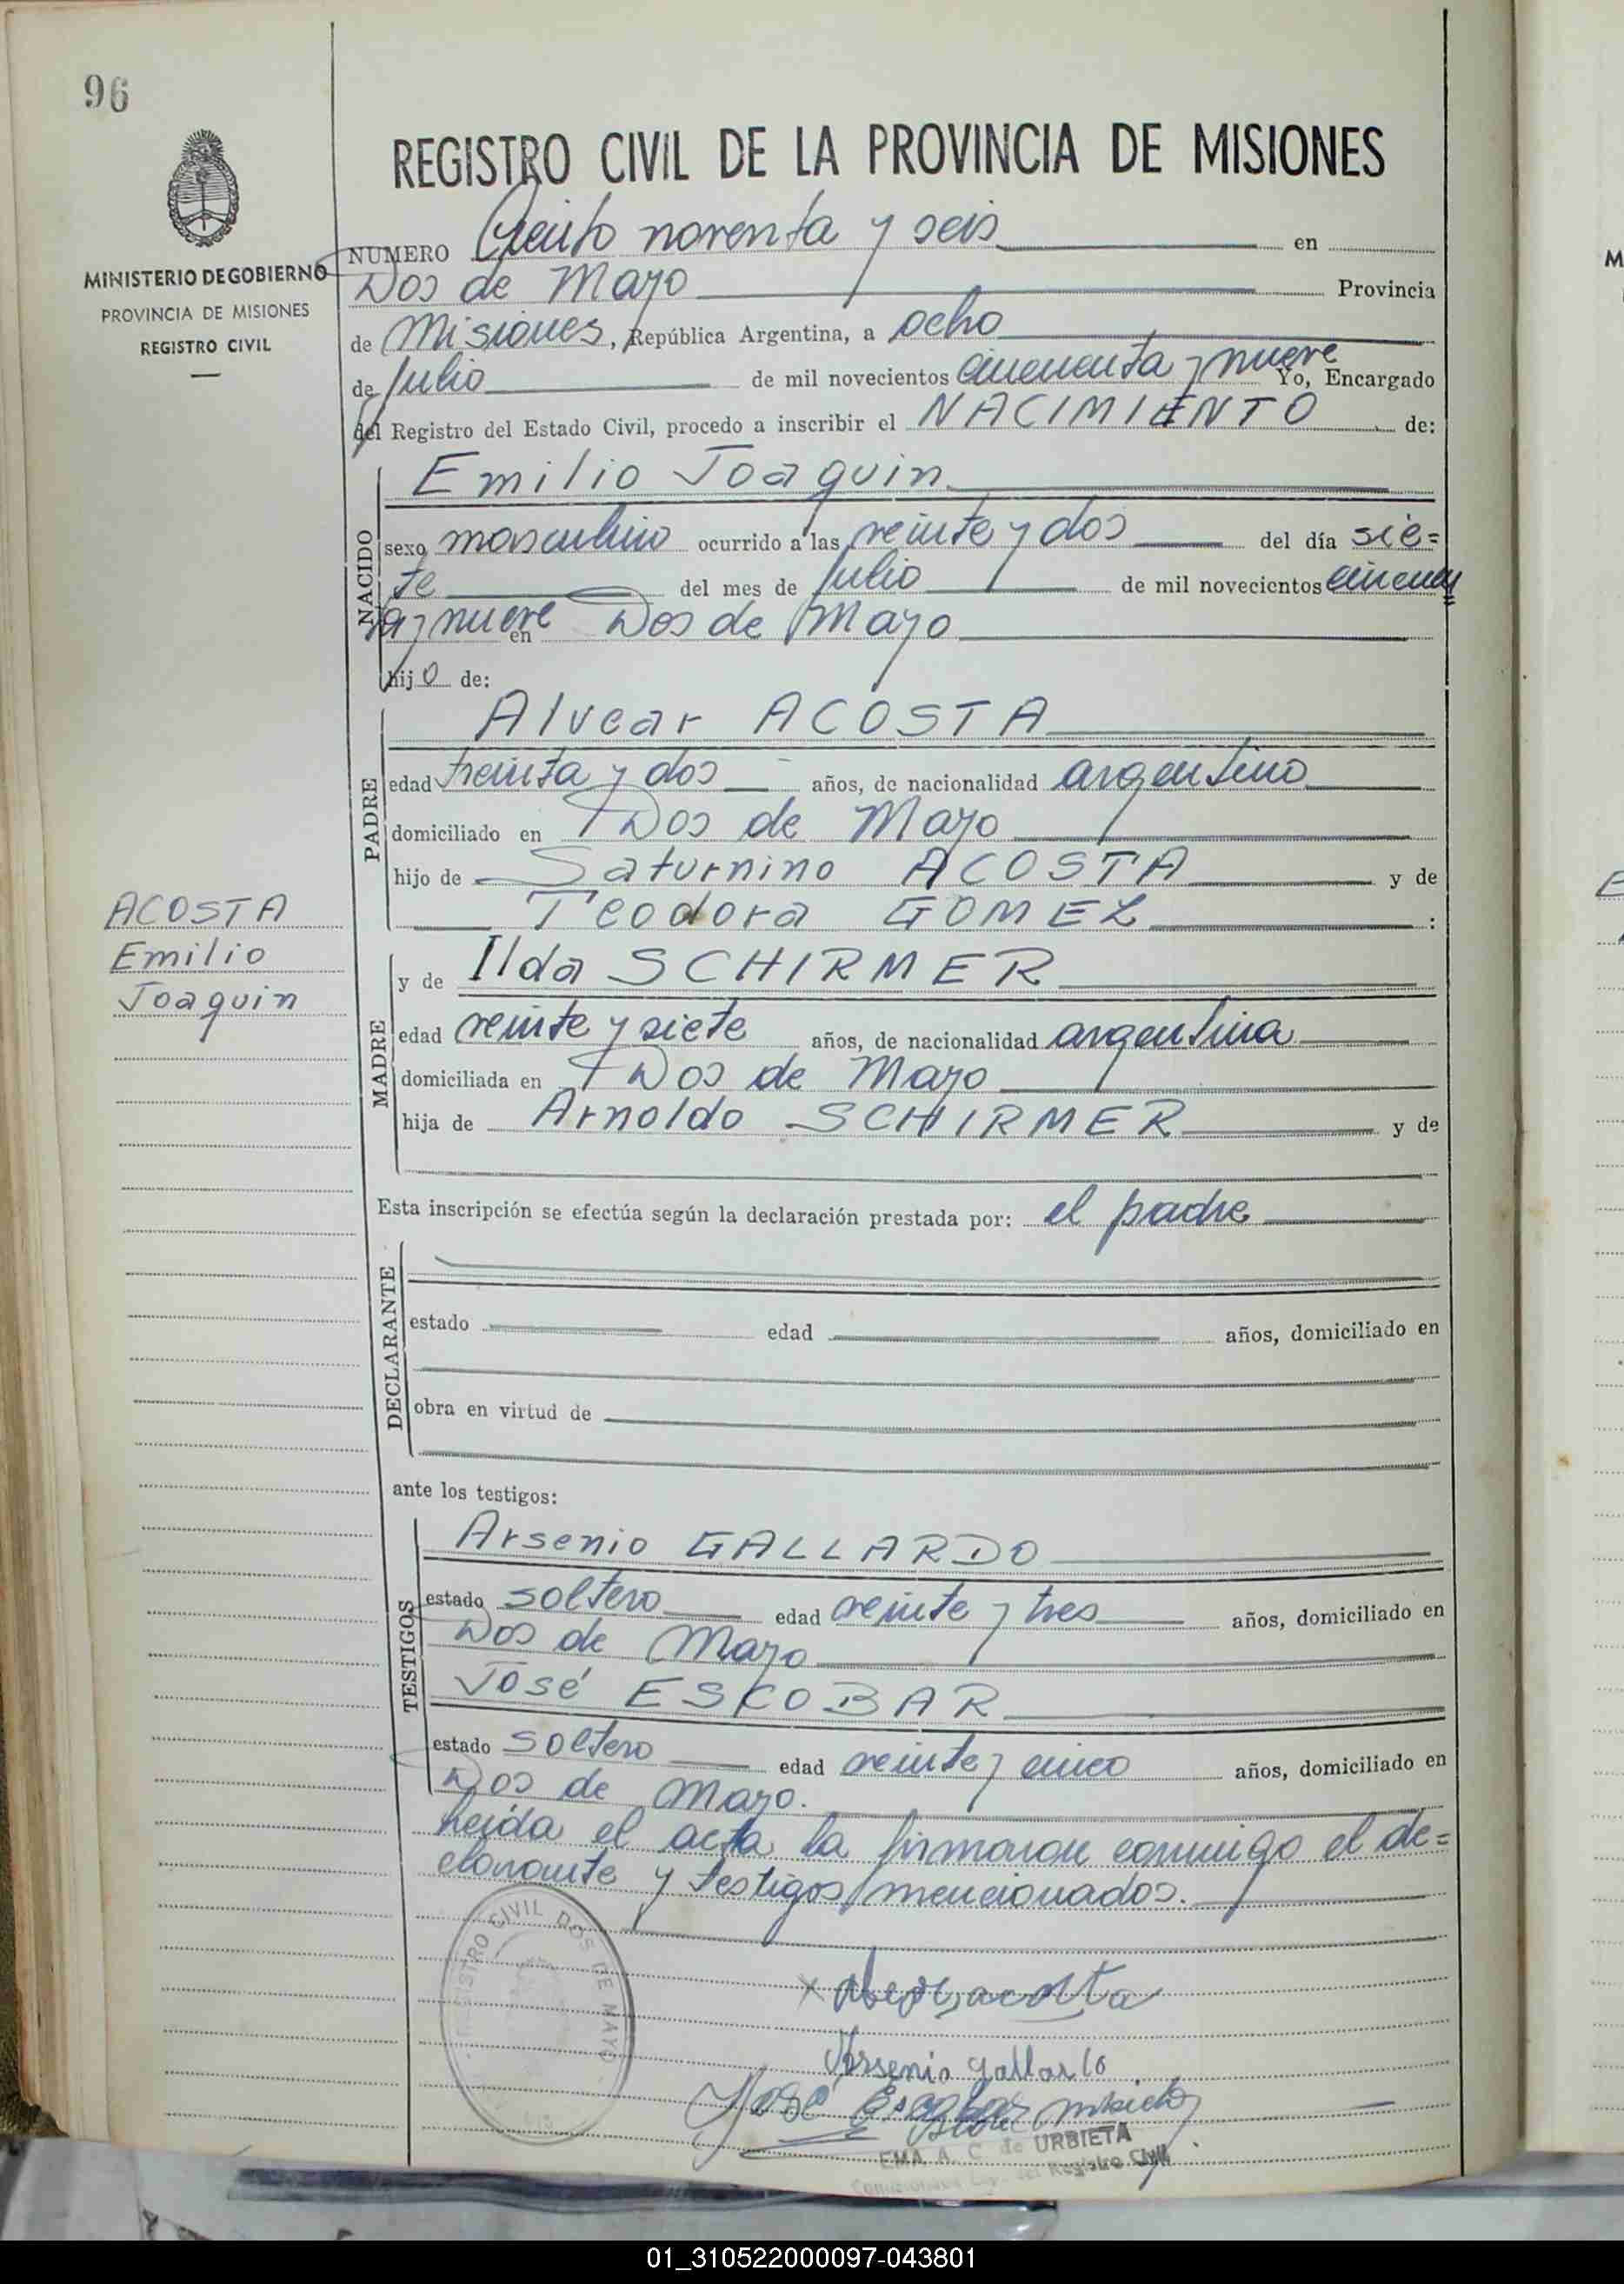 96
MINISTERIO DE GOBIERNO
PROVINCIA DE MISIONES
REGISTRO CIVIL
REGISTRO CIVIL DE LA PROVINCIA DE MISIONES
NUMERO Ciento noventa y seis en
Dos de Mayo Provincia
de Misiones, República Argentina, a ocho
de Julio de mil novecientos cincuenta y nueve Yo, Encargado
del Registro del Estado Civil, procedo a inscribir el NACIMIENTO de:
NACIDO
Emilio Joaquin
sexo masculino ocurrido a las veinte y dos del día sie=
te del mes de Julio de mil novecientos cincuen=
ta y nueve en Dos de Mayo
hijo de:
PADRE
Alvear ACOSTA
edad treinta y dos años, de nacionalidad argentino
domiciliado en Dos de Mayo
hijo de Saturnino ACOSTA y de
Teodora GOMEZ :
ACOSTA
Emilio
Joaquin
MADRE
y de Ilda SCHIRMER
edad veinte y siete años, de nacionalidad argentina
domiciliada en Dos de Mayo
hija de Arnoldo SCHIRMER y de
Esta inscripción se efectúa según la declaración prestada por: el padre
DECLARANTE
estado edad años, domiciliado en
obra en virtud de
ante los testigos:
TESTIGOS
Arsenio GALLARDO
estado soltero edad veinte y tres años, domiciliado en
Dos de Mayo
José ESCOBAR
estado soltero edad veinte y cinco años, domiciliado en
Dos de Mayo.
Leída el acta la firmaron conmigo el de=
clarante y testigos mencionados.
REGISTRO CIVIL DOS DE MAYO
x acosta
Arsenio gallardo
José Escobar
EMA A. C. de URBIETA
del Registro Civil
01_310522000097-043801